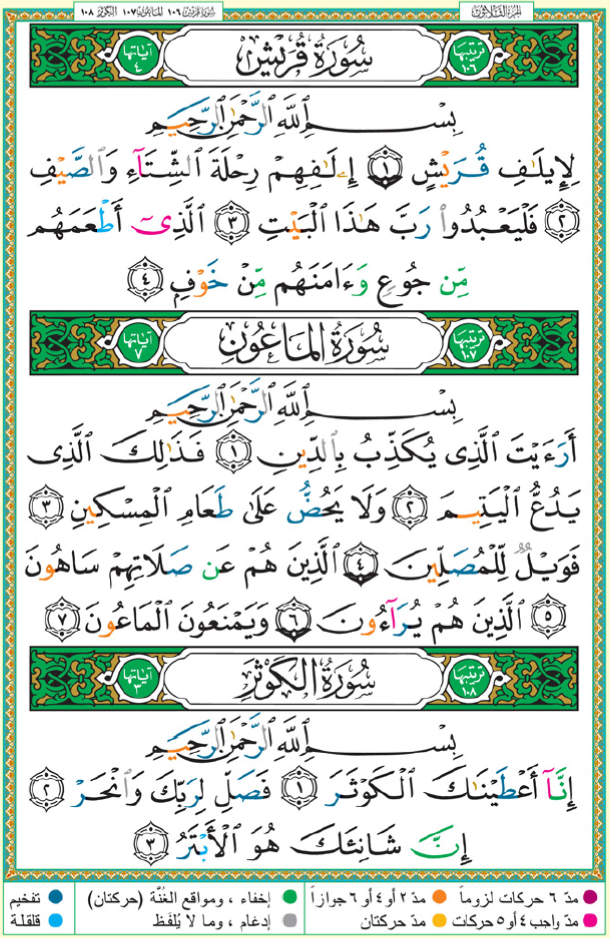 الجزء الثلاثون
سورة قريش ١٠٦ الماعون ١٠٧ الكوثر ١٠٨
ترتيبها ١٠٦ سُورَةُ قُرَيْشٍ آياتها ٤
بِسْمِ ٱللَّهِ ٱلرَّحْمَٰنِ ٱلرَّحِيمِ
لِإِيلَٰفِ قُرَيْشٍ ١ إِۦلَٰفِهِمْ رِحْلَةَ ٱلشِّتَآءِ وَٱلصَّيْفِ
٢ فَلْيَعْبُدُوا۟ رَبَّ هَٰذَا ٱلْبَيْتِ ٣ ٱلَّذِىٓ أَطْعَمَهُم
مِّن جُوعٍ وَءَامَنَهُم مِّنْ خَوْفٍۭ ٤
ترتيبها ١٠٧ سُورَةُ المَاعُونِ آياتها ٧
بِسْمِ ٱللَّهِ ٱلرَّحْمَٰنِ ٱلرَّحِيمِ
أَرَءَيْتَ ٱلَّذِى يُكَذِّبُ بِٱلدِّينِ ١ فَذَٰلِكَ ٱلَّذِى
يَدُعُّ ٱلْيَتِيمَ ٢ وَلَا يَحُضُّ عَلَىٰ طَعَامِ ٱلْمِسْكِينِ ٣
فَوَيْلٌ لِّلْمُصَلِّينَ ٤ ٱلَّذِينَ هُمْ عَن صَلَاتِهِمْ سَاهُونَ
٥ ٱلَّذِينَ هُمْ يُرَآءُونَ ٦ وَيَمْنَعُونَ ٱلْمَاعُونَ ٧
ترتيبها ١٠٨ سُورَةُ الكَوْثَرِ آياتها ٣
بِسْمِ ٱللَّهِ ٱلرَّحْمَٰنِ ٱلرَّحِيمِ
إِنَّآ أَعْطَيْنَٰكَ ٱلْكَوْثَرَ ١ فَصَلِّ لِرَبِّكَ وَٱنْحَرْ ٢
إِنَّ شَانِئَكَ هُوَ ٱلْأَبْتَرُ ٣
مدّ ٦ حركات لزوماً مدّ ٢ أو ٤ أو ٦ جوازاً إخفاء ، ومواقع الغُنَّة (حركتان) تفخيم
مدّ واجب ٤ أو ٥ حركات مدّ حركتان إدغام ، وما لا يُلفَظ قلقلة